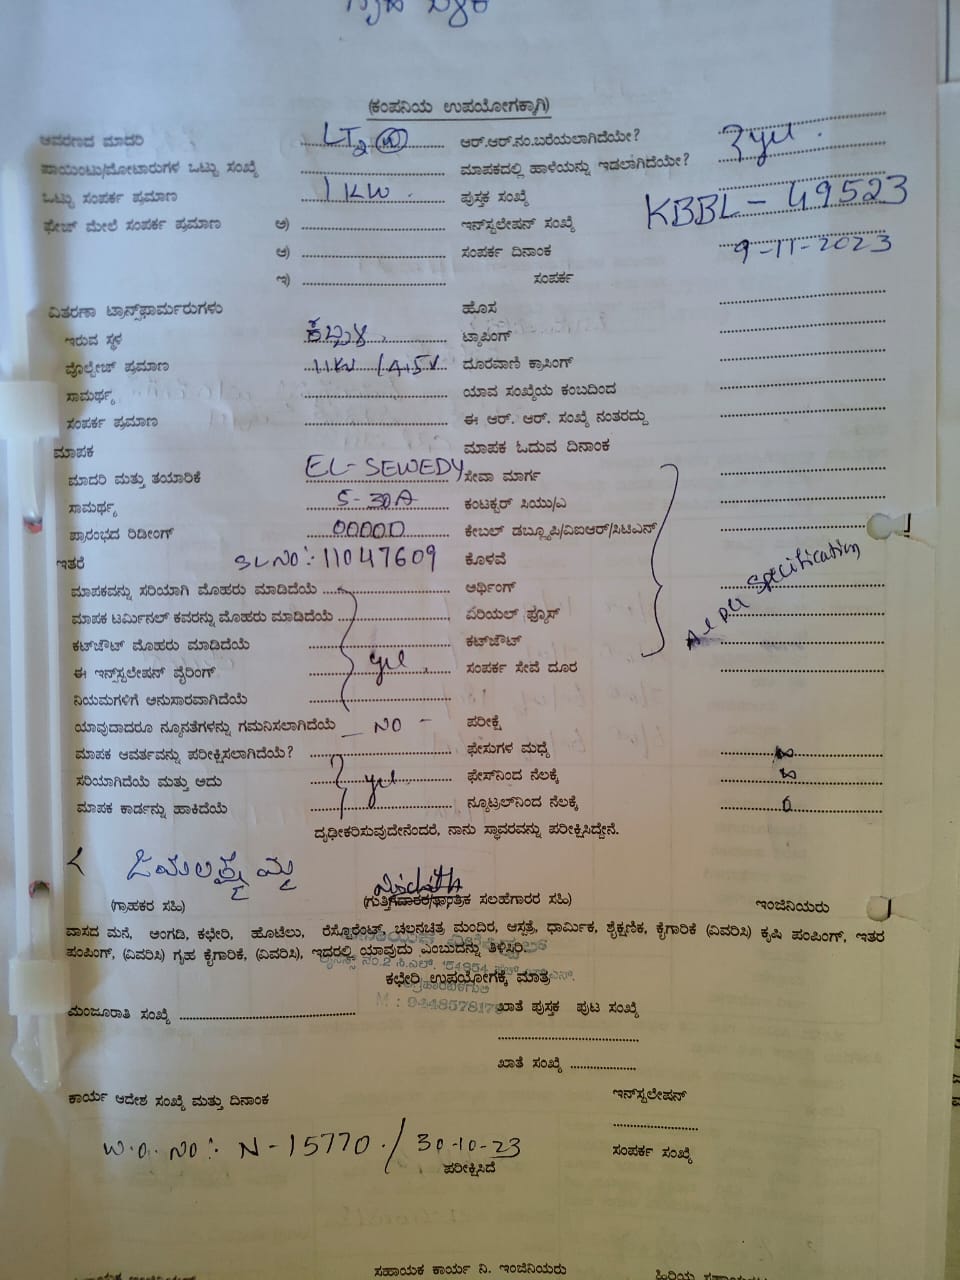 (ಕಂಪನಿಯ ಉಪಯೋಗಕ್ಕಾಗಿ)
ಆವರಣದ ಮಾದರಿ LT2 ಆರ್.ಆರ್.ನಂ.ಬರೆಯಲಾಗಿದೆಯೇ?
ಪಾಯಿಂಟು/ಮೋಟಾರುಗಳ ಒಟ್ಟು ಸಂಖ್ಯೆ ಮಾಪಕದಲ್ಲಿ ಹಾಳೆಯನ್ನು ಇಡಲಾಗಿದೆಯೇ? yes.
ಒಟ್ಟು ಸಂಪರ್ಕ ಪ್ರಮಾಣ 1 KW. ಪುಸ್ತಕ ಸಂಖ್ಯೆ
ಫೇಜ್ ಮೇಲೆ ಸಂಪರ್ಕ ಪ್ರಮಾಣ ಅ) ಇನ್‌ಸ್ಟಲೇಷನ್ ಸಂಖ್ಯೆ KBBL-49523
ಆ) ಸಂಪರ್ಕ ದಿನಾಂಕ 9-11-2023
ಇ) ಸಂಪರ್ಕ
ವಿತರಣಾ ಟ್ರಾನ್ಸ್‌ಫಾರ್ಮರುಗಳು ಹೊಸ
ಇರುವ ಸ್ಥಳ ಟ್ಯಾಪಿಂಗ್
ವೋಲ್ಟೇಜ್ ಪ್ರಮಾಣ ದೂರವಾಣಿ ಕ್ರಾಸಿಂಗ್
ಸಾಮರ್ಥ್ಯ ಯಾವ ಸಂಖ್ಯೆಯ ಕಂಬದಿಂದ
ಸಂಪರ್ಕ ಪ್ರಮಾಣ ಈ ಆರ್. ಆರ್. ಸಂಖ್ಯೆ ನಂತರದ್ದು
ಮಾಪಕ ಮಾಪಕ ಓದುವ ದಿನಾಂಕ
ಮಾದರಿ ಮತ್ತು ತಯಾರಿಕೆ EL-SEWEDY ಸೇವಾ ಮಾರ್ಗ
ಸಾಮರ್ಥ್ಯ 5-30A ಕಂಟಕ್ಟರ್ ಸಿಯು/ಎ
ಪ್ರಾರಂಭದ ರಿಡಿಂಗ್ 00000 ಕೇಬಲ್ ಡಬ್ಲ್ಯೂಪಿ/ವಿಐಆರ್/ಸಿಟಿಎನ್
ಇತರೆ SL NO: 11047609 ಕೊಳವೆ
ಮಾಪಕವನ್ನು ಸರಿಯಾಗಿ ಮೊಹರು ಮಾಡಿದೆಯೆ ಅರ್ಥಿಂಗ್ As per Specification
ಮಾಪಕ ಟರ್ಮಿನಲ್ ಕವರನ್ನು ಮೊಹರು ಮಾಡಿದೆಯೆ ಏರಿಯಲ್ ಫ್ಯೂಸ್
ಕಟ್‌ಔಟ್ ಮೊಹರು ಮಾಡಿದೆಯೆ ಕಟ್‌ಔಟ್
ಈ ಇನ್‌ಸ್ಟಲೇಷನ್ ವೈರಿಂಗ್ yes. ಸಂಪರ್ಕ ಸೇವೆ ದೂರ
ನಿಯಮಗಳಿಗೆ ಅನುಸಾರವಾಗಿದೆಯೆ
ಯಾವುದಾದರೂ ನ್ಯೂನತೆಗಳನ್ನು ಗಮನಿಸಲಾಗಿದೆಯೆ - NO - ಪರೀಕ್ಷೆ
ಮಾಪಕ ಆವರ್ತವನ್ನು ಪರೀಕ್ಷಿಸಲಾಗಿದೆಯೆ? ಫೇಸುಗಳ ಮಧ್ಯೆ ∞
ಸರಿಯಾಗಿದೆಯೆ ಮತ್ತು ಅದು yes. ಫೇಸ್‌ನಿಂದ ನೆಲಕ್ಕೆ ∞
ಮಾಪಕ ಕಾರ್ಡನ್ನು ಹಾಕಿದೆಯೆ ನ್ಯೂಟ್ರಲ್‌ನಿಂದ ನೆಲಕ್ಕೆ 0
ದೃಢೀಕರಿಸುವುದೇನೆಂದರೆ, ನಾನು ಸ್ಥಾವರವನ್ನು ಪರೀಕ್ಷಿಸಿದ್ದೇನೆ.
(ಗ್ರಾಹಕರ ಸಹಿ) (ಗುತ್ತಿಗೆದಾಕರ/ತಾಂತ್ರಿಕ ಸಲಹೆಗಾರರ ಸಹಿ) ಇಂಜಿನಿಯರು
ವಾಸದ ಮನೆ, ಅಂಗಡಿ, ಕಛೇರಿ, ಹೊಟೆಲು, ರೆಸ್ಟೊರೆಂಟ್, ಚಲನಚಿತ್ರ ಮಂದಿರ, ಆಸ್ಪತ್ರೆ, ಧಾರ್ಮಿಕ, ಶೈಕ್ಷಣಿಕ, ಕೈಗಾರಿಕೆ (ವಿವರಿಸಿ) ಕೃಷಿ ಪಂಪಿಂಗ್, ಇತರ
ಪಂಪಿಂಗ್, (ವಿವರಿಸಿ) ಗೃಹ ಕೈಗಾರಿಕೆ, (ವಿವರಿಸಿ), ಇದರಲ್ಲಿ ಯಾವುದು ಎಂಬುದನ್ನು ತಿಳಿಸಿರಿ.
ಕಛೇರಿ ಉಪಯೋಗಕ್ಕೆ ಮಾತ್ರ
ಮಂಜೂರಾತಿ ಸಂಖ್ಯೆ ಖಾತೆ ಪುಸ್ತಕ ಪುಟ ಸಂಖ್ಯೆ
ಖಾತೆ ಸಂಖ್ಯೆ
ಕಾರ್ಯ ಆದೇಶ ಸಂಖ್ಯೆ ಮತ್ತು ದಿನಾಂಕ ಇನ್‌ಸ್ಟಲೇಷನ್
W.O. NO: N-15770 / 30-10-23 ಸಂಪರ್ಕ ಸಂಖ್ಯೆ
ಪರೀಕ್ಷಿಸಿದೆ
ಸಹಾಯಕ ಕಾರ್ಯ ನಿ. ಇಂಜಿನಿಯರು